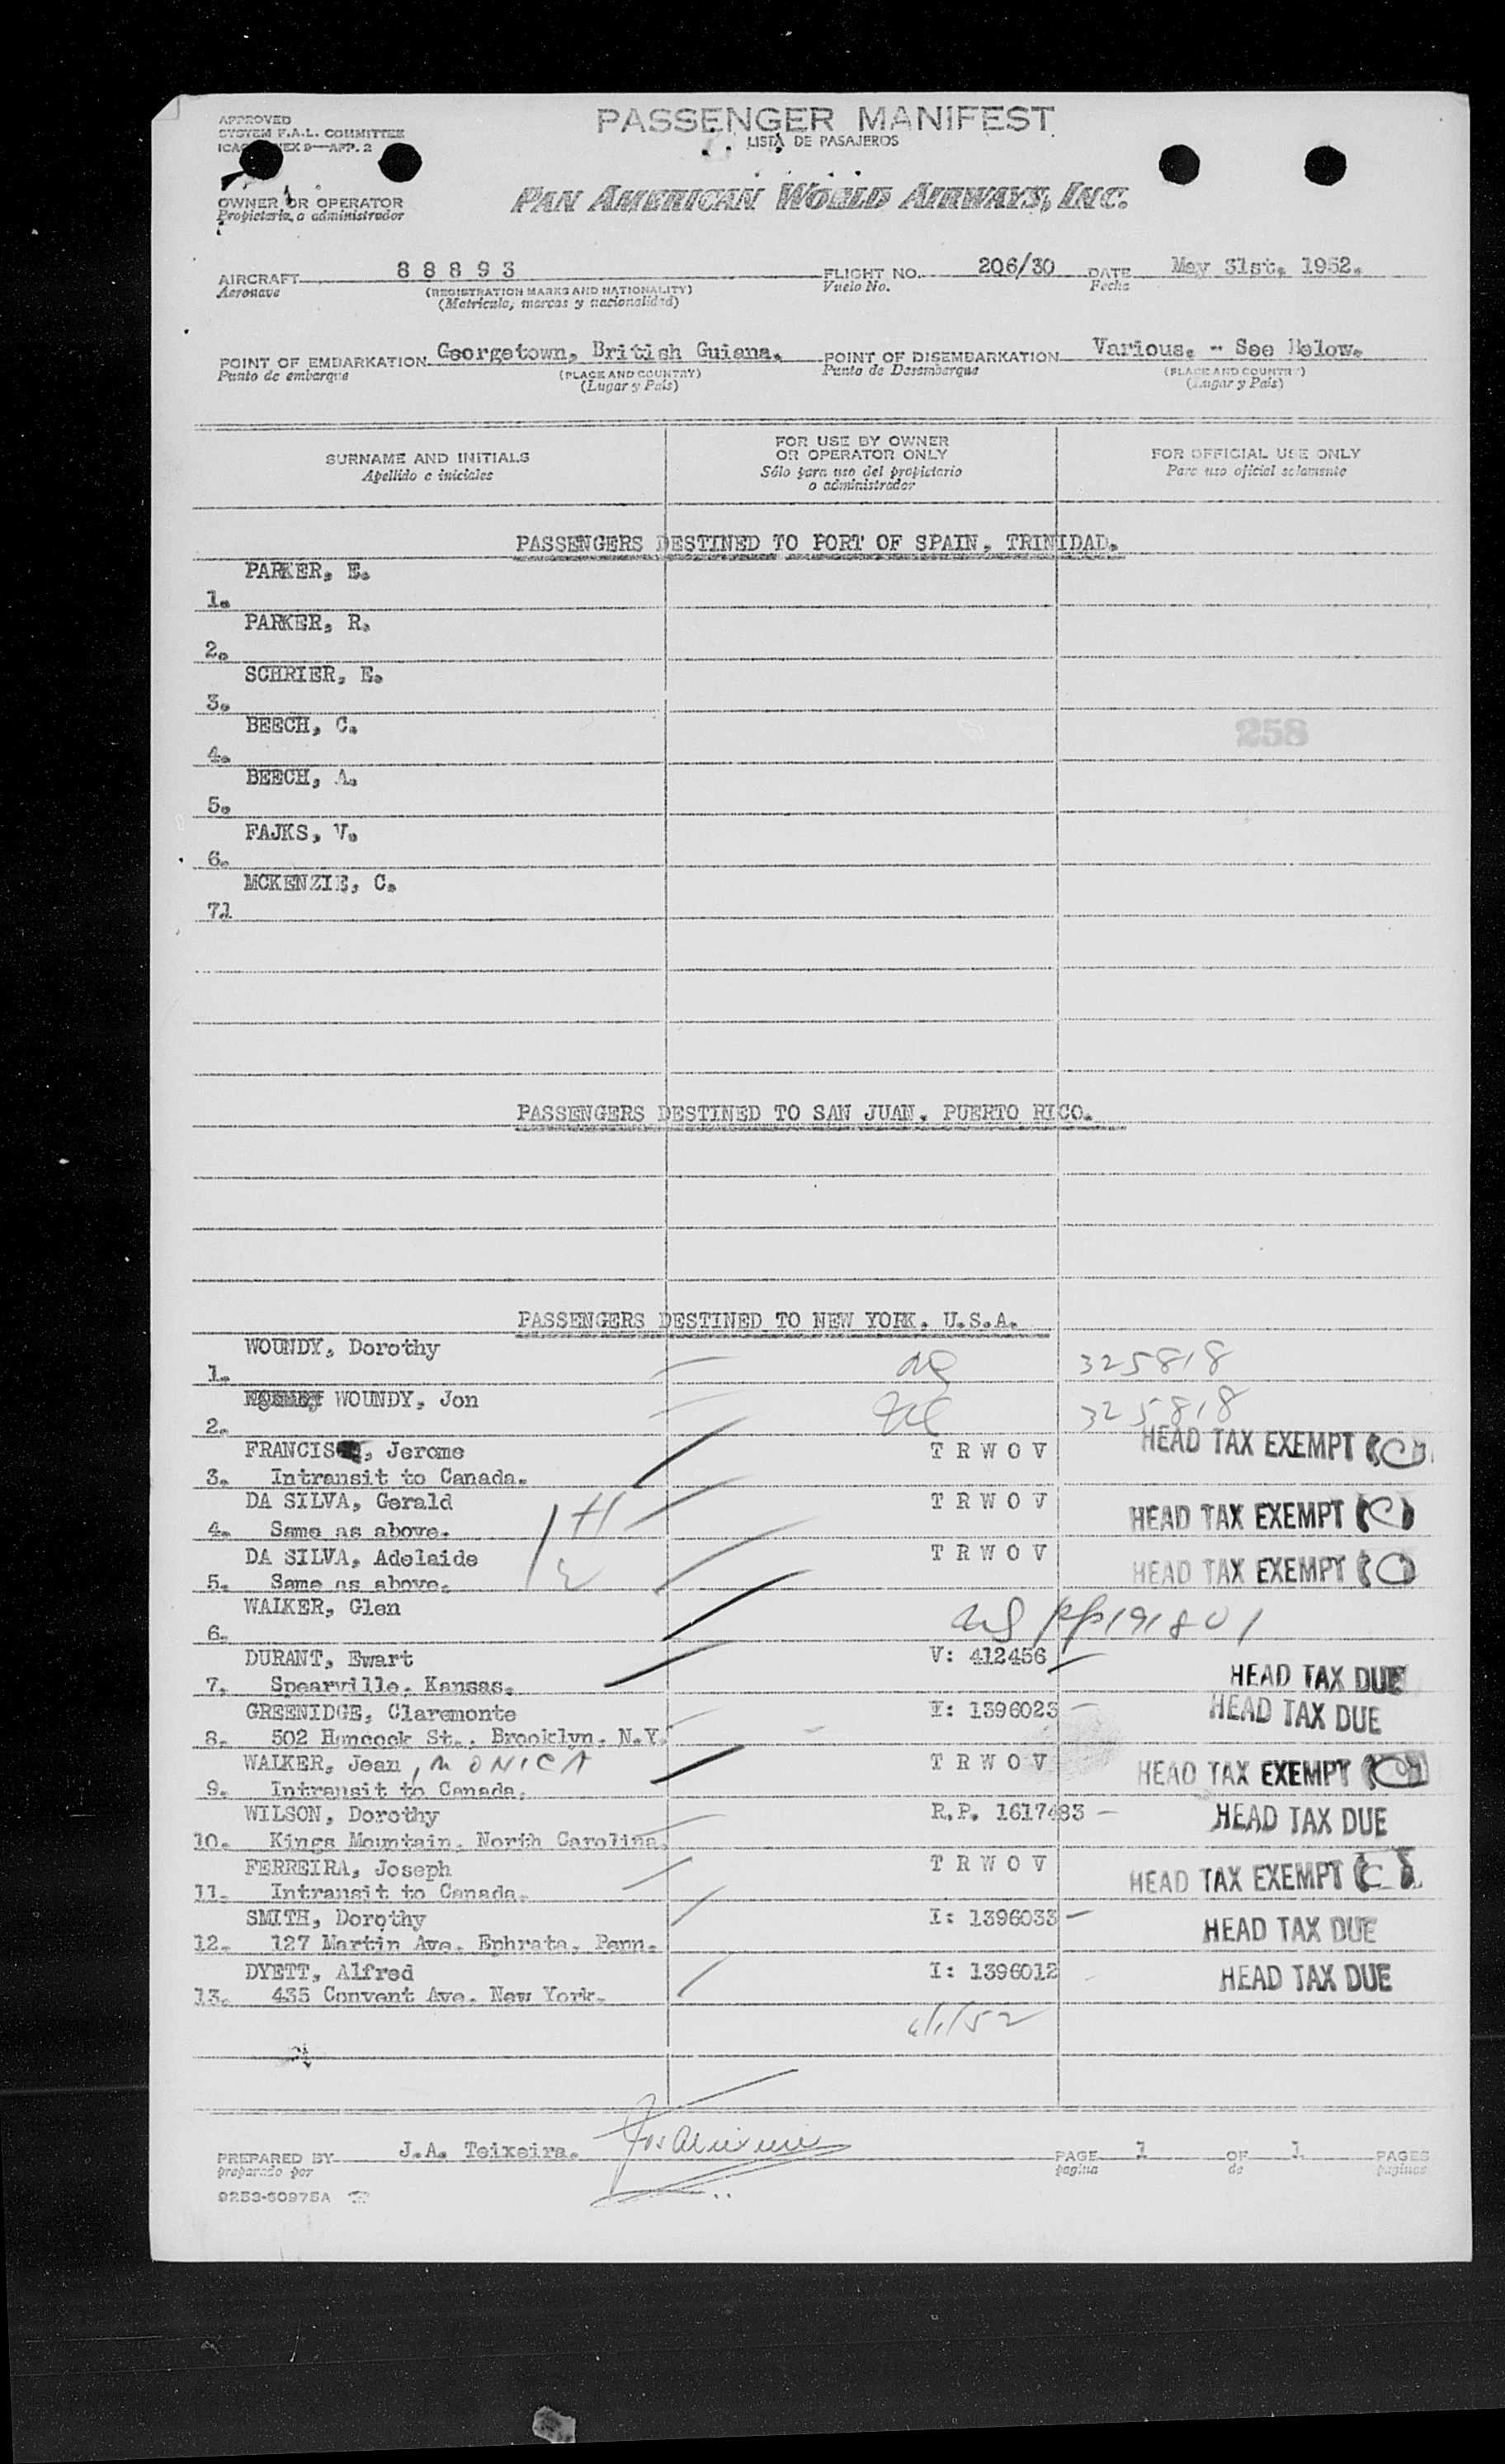 APPROVED
SYSTEM F.A.L. COMMITTEE
ICAO ANNEX 9—APP. 2
PASSENGER MANIFEST
LISTA DE PASAJEROS
OWNER OR OPERATOR
Propietario, o administrador
PAN AMERICAN WORLD AIRWAYS, INC.
AIRCRAFT 8 8 8 9 3 FLIGHT NO. 206/30 DATE May 31st, 1952.
Aeronave (REGISTRATION MARKS AND NATIONALITY) Vuelo No. Fecha
(Matricula, marcas y nacionalidad)
POINT OF EMBARKATION Georgetown, British Guiana. POINT OF DISEMBARKATION Various. - See Below.
Punto de embarque (PLACE AND COUNTRY) Punto de Desembarque (PLACE AND COUNTRY)
(Lugar y País) (Lugar y País)
SURNAME AND INITIALS
Apellido e iniciales
FOR USE BY OWNER
OR OPERATOR ONLY
Sólo para uso del propietario
o administrador
FOR OFFICIAL USE ONLY
Para uso oficial solamente
PASSENGERS DESTINED TO PORT OF SPAIN, TRINIDAD.
PARKER, E.
1.
PARKER, R.
2.
SCHRIER, E.
3.
BEECH, C. 258
4.
BEECH, A.
5.
FAJKS, V.
6.
MCKENZIE, C.
71
PASSENGERS DESTINED TO SAN JUAN, PUERTO RICO.
PASSENGERS DESTINED TO NEW YORK. U.S.A.
WOUNDY, Dorothy 325818
1.
WOUNDY, Jon 325818
2.
FRANCIS, Jerome T R W O V HEAD TAX EXEMPT
3. Intransit to Canada.
DA SILVA, Gerald T R W O V HEAD TAX EXEMPT
4. Same as above.
DA SILVA, Adelaide T R W O V HEAD TAX EXEMPT
5. Same as above.
WALKER, Glen pp 191801
6.
DURANT, Ewart V: 412456 HEAD TAX DUE
7. Spearville, Kansas.
GREENIDGE, Claremonte I: 1396023 HEAD TAX DUE
8. 502 Hancock St., Brooklyn, N.Y.
WALKER, Jean, MONICA T R W O V HEAD TAX EXEMPT
9. Intransit to Canada.
WILSON, Dorothy R.P. 1617483 HEAD TAX DUE
10. Kings Mountain, North Carolina.
FERREIRA, Joseph T R W O V HEAD TAX EXEMPT
11. Intransit to Canada.
SMITH, Dorothy I: 1396033 HEAD TAX DUE
12. 127 Martin Ave. Ephrata, Penn.
DYETT, Alfred I: 1396012 HEAD TAX DUE
13. 435 Convent Ave. New York.
6/1/52
PREPARED BY J.A. Teixeira. PAGE 1 OF 1 PAGES
preparado por pagina de paginas
9253-60975A